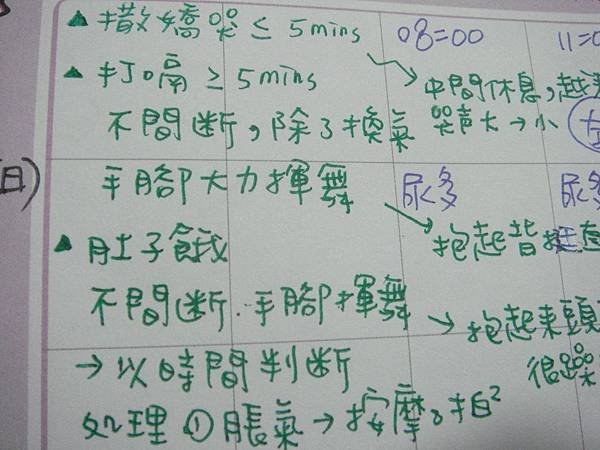 ▲ 撒嬌哭 ≤ 5 mins
08=00
▲ 打嗝 ≥ 5 mins
中間休息,越
不間斷,除了換氣
哭声大→小
日)
手腳大力揮舞
尿多
尿多
抱起背挺直
▲ 肚子餓
不間斷.手腳揮舞
→抱起來頭
→以時間判斷
很躁
処理①脹氣→按摩。拍²